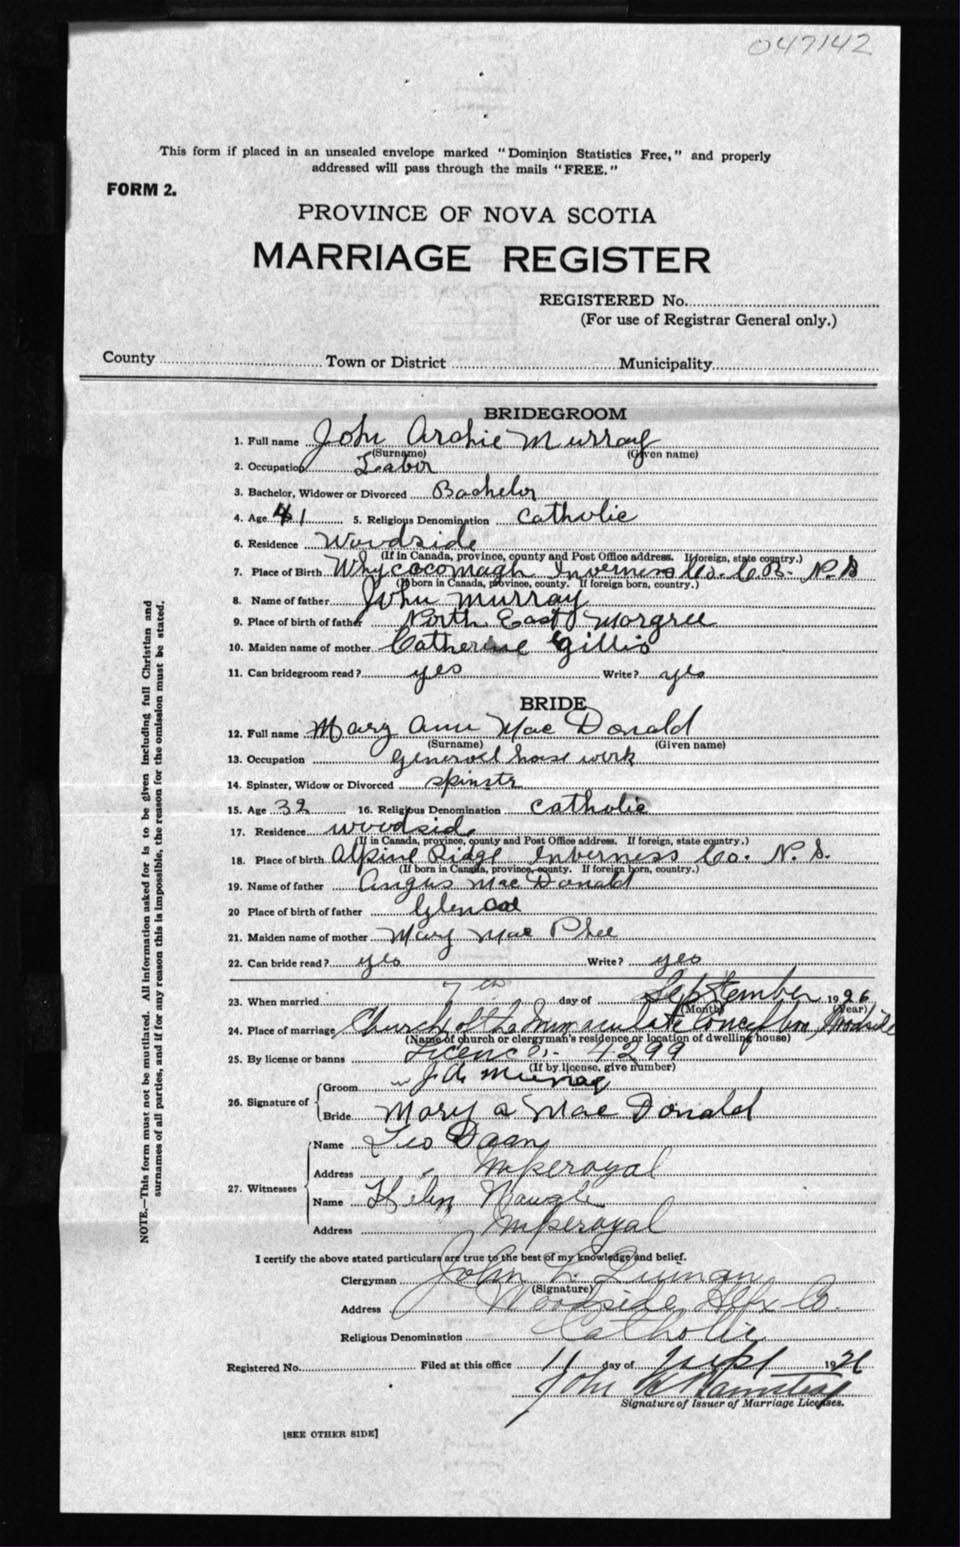 047142
This form if placed in an unsealed envelope marked "Dominion Statistics Free," and properly
addressed will pass through the mails "FREE."
FORM 2.
PROVINCE OF NOVA SCOTIA
MARRIAGE REGISTER
REGISTERED No.
(For use of Registrar General only.)
County Town or District Municipality
BRIDEGROOM
1. Full name John Archie Murray
(Surname) (Given name)
2. Occupation Labor
3. Bachelor, Widower or Divorced Bachelor
4. Age 41 5. Religious Denomination Catholic
6. Residence Woodside
(If in Canada, province, county and Post Office address. If foreign, state country.)
7. Place of Birth Whycocomagh Inverness Co. C.B. N.S
(If born in Canada, province, county. If foreign born, country.)
8. Name of father John Murray
9. Place of birth of father North East Margree
10. Maiden name of mother Catherine Gillis
11. Can bridegroom read? yes Write? yes
BRIDE
12. Full name Mary Ann Mac Donald
(Surname) (Given name)
13. Occupation General house work
14. Spinster, Widow or Divorced spinstr
15. Age 32 16. Religious Denomination Catholic
17. Residence Woodside
(If in Canada, province, county and Post Office address. If foreign, state country.)
18. Place of birth Alpine Ridge Inverness Co. N. S.
(If born in Canada, province, county. If foreign born, country.)
19. Name of father Angus Mac Donald
20 Place of birth of father Glencoe
21. Maiden name of mother Mary Mac Phee
22. Can bride read? yes Write? yes
23. When married 7th day of September 1926
(Month) (Year)
24. Place of marriage Church of the Immaculate Conception, Woodside
(Name of church or clergyman's residence or location of dwelling house)
25. By license or banns Licence:- 4299
(If by license, give number)
26. Signature of Groom J. A. Murray
Bride Mary A Mac Donald
27. Witnesses Name Leo
Address Imperoyal
Name Helen Naugle
Address Imperoyal
I certify the above stated particulars are true to the best of my knowledge and belief.
Clergyman John L.
(Signature)
Address Woodside Hfx Co.
Religious Denomination Catholic
Registered No. Filed at this office 11 day of Sept 1926
John
Signature of Issuer of Marriage Licenses.
[SEE OTHER SIDE]
NOTE.—This form must not be mutilated. All information asked for is to be given including full Christian and
surnames of all parties, and if for any reason this is impossible, the reason for the omission must be stated.